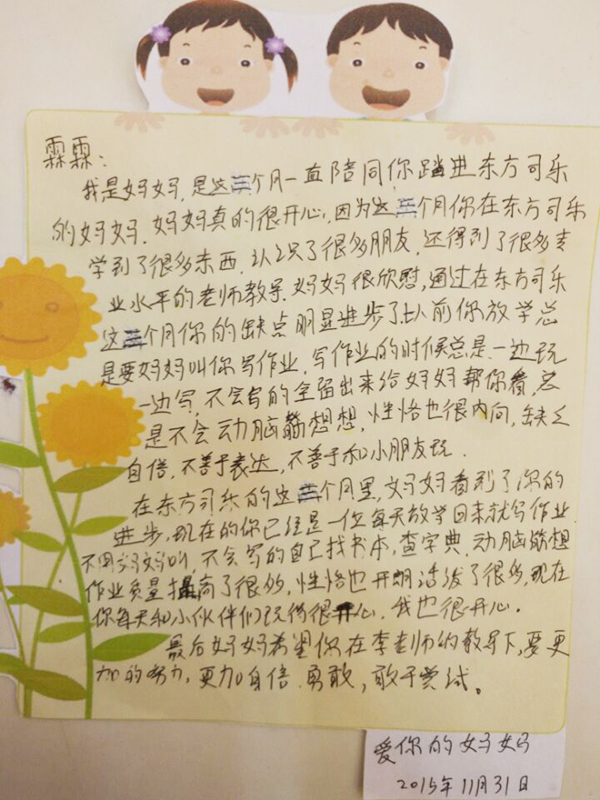 霖霖：
我是妈妈，是这三个月一直陪同你踏进东方可乐
的妈妈，妈妈真的很开心，因为这三个月你在东方可乐
学到了很多东西，认识了很多朋友，还得到了很多专
业水平的老师教导，妈妈很欣慰，通过在东方可乐
这三个月你的缺点明显进步了，以前你放学总
是要妈妈叫你写作业，写作业的时候总是一边玩
一边写，不会写的全留出来给妈妈帮你看，总
是不会动脑筋想想，性恪也很内向，缺乏
自倍，不善于表达，不善于和小朋友玩．
在东方可乐的这三个月里，妈妈看到了你的
进步，现在的你已经是一位每天放学回来就写作业
不用妈妈叫，不会写的自己找书本，查字典，动脑筋想
作业质量提高了很多，性恪也开朗活泼了很多，现在
你每天和小伙伴们玩得很开心．我也很开心．
最后妈妈希望你在李老师的教导下，要更
加的努力，更加自倍．勇敢，敢于尝试。
爱你的妈妈
2015年11月31日